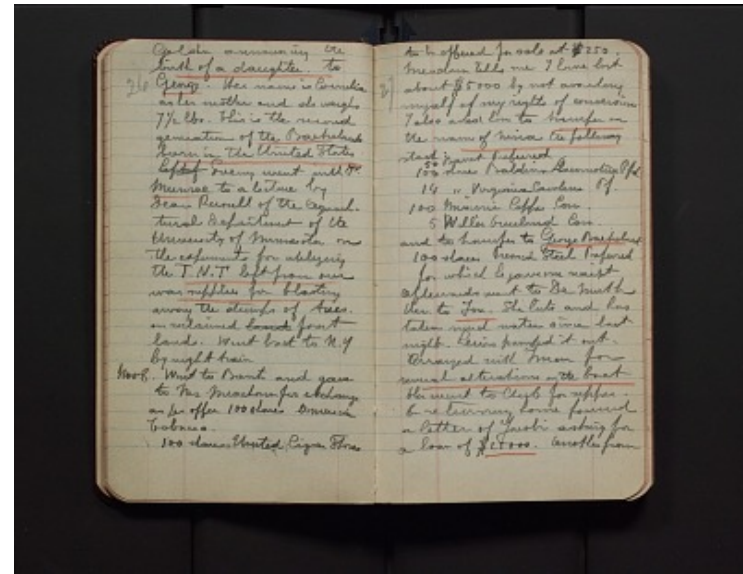 announcing the
birth of a daughter to
26 George. Her name is Cornelia
as her mother and she weighs
7½ lbs. This is the second
generation of the Baekelands
born in the United States
Evening went with Dr
Munroe to a lecture by
Dean of the Agricul-
tural Department of the
University of Minnesota on
the experiments for utilizing
the T.N.T left from our
war supplies for blasting
away the stumps of trees
on reclaimed land forest
lands. Went back to N.Y
by night train
Nov 8. Went to Bank and gave
to Mr Meachem for exchange
as per offer 100 shares
Tobacco.
100 shares United Cigar Stores
to be offered for sale at $250.
tells me I have lost
27 about $5000 by not availing
myself of my rights of conversion
I also asked him to transfer in
the name of Nina the following
stock
100 shares Baldwin Locomotive Pfd.
14 " Virginia Carolina Pf.
100 Miami Copper Com.
5 Com.
and to transfer to George Baekeland
100 shares Steel Preferred
for which he gave me receipt
afterwards went to
to Ion. She and has
taken much water since last
night. pumped it out.
Arranged with man for
several alterations on the boat
went to Club for supper.
returning home found
a letter of Jacobi asking for
a loan of $25000. Another from